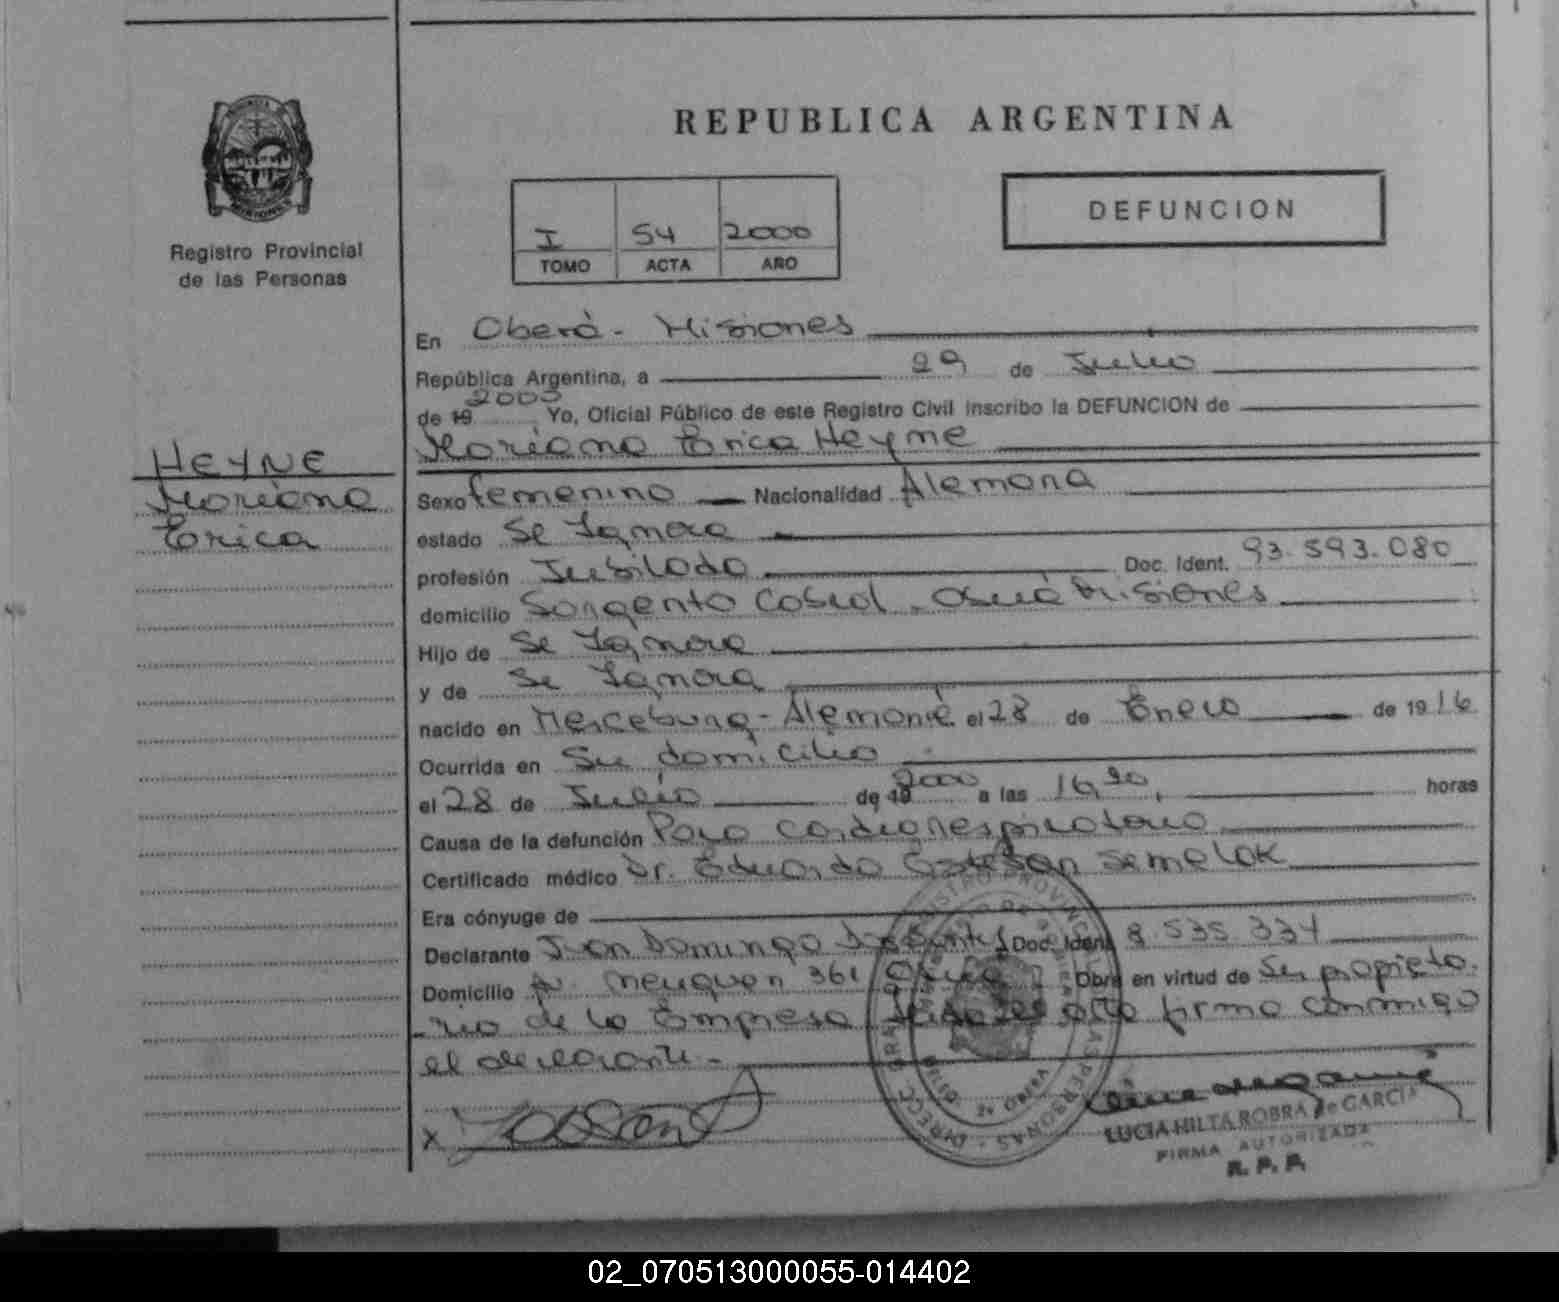 REPUBLICA ARGENTINA
DEFUNCION
I 54 2000
TOMO ACTA AÑO
Registro Provincial
de las Personas
HEYNE
Mariana
Erica
En Oberá - Misiones
República Argentina, a 29 de Julio
de 19 2000 Yo, Oficial Público de este Registro Civil inscribo la DEFUNCION de
Mariana Erica Heyne
Sexo femenino Nacionalidad Alemana
estado Se Ignora
profesión Jubilada Doc. Ident. 93.593.080
domicilio Sargento Cabral - Oberá Misiones
Hijo de Se Ignora
y de Se Ignora
nacido en Merceburg - Alemania el 28 de Enero de 1916
Ocurrida en Su domicilio
el 28 de Julio de 19 2000 a las 16,30 horas
Causa de la defunción Paro cardiorespiratorio
Certificado médico Dr. Eduardo Esteban Semelak
Era cónyuge de
Declarante Juan Domingo Doc. Ident. 8.535.334
Domicilio Av. Neuquen 361 Oberá Obra en virtud de Ser propieta-
rio de la Empresa firma conmigo
el declarante.-
X
LUCIA HILTA ROBRA de GARCIA
FIRMA AUTORIZADA
R. P. P.
02_070513000055-014402